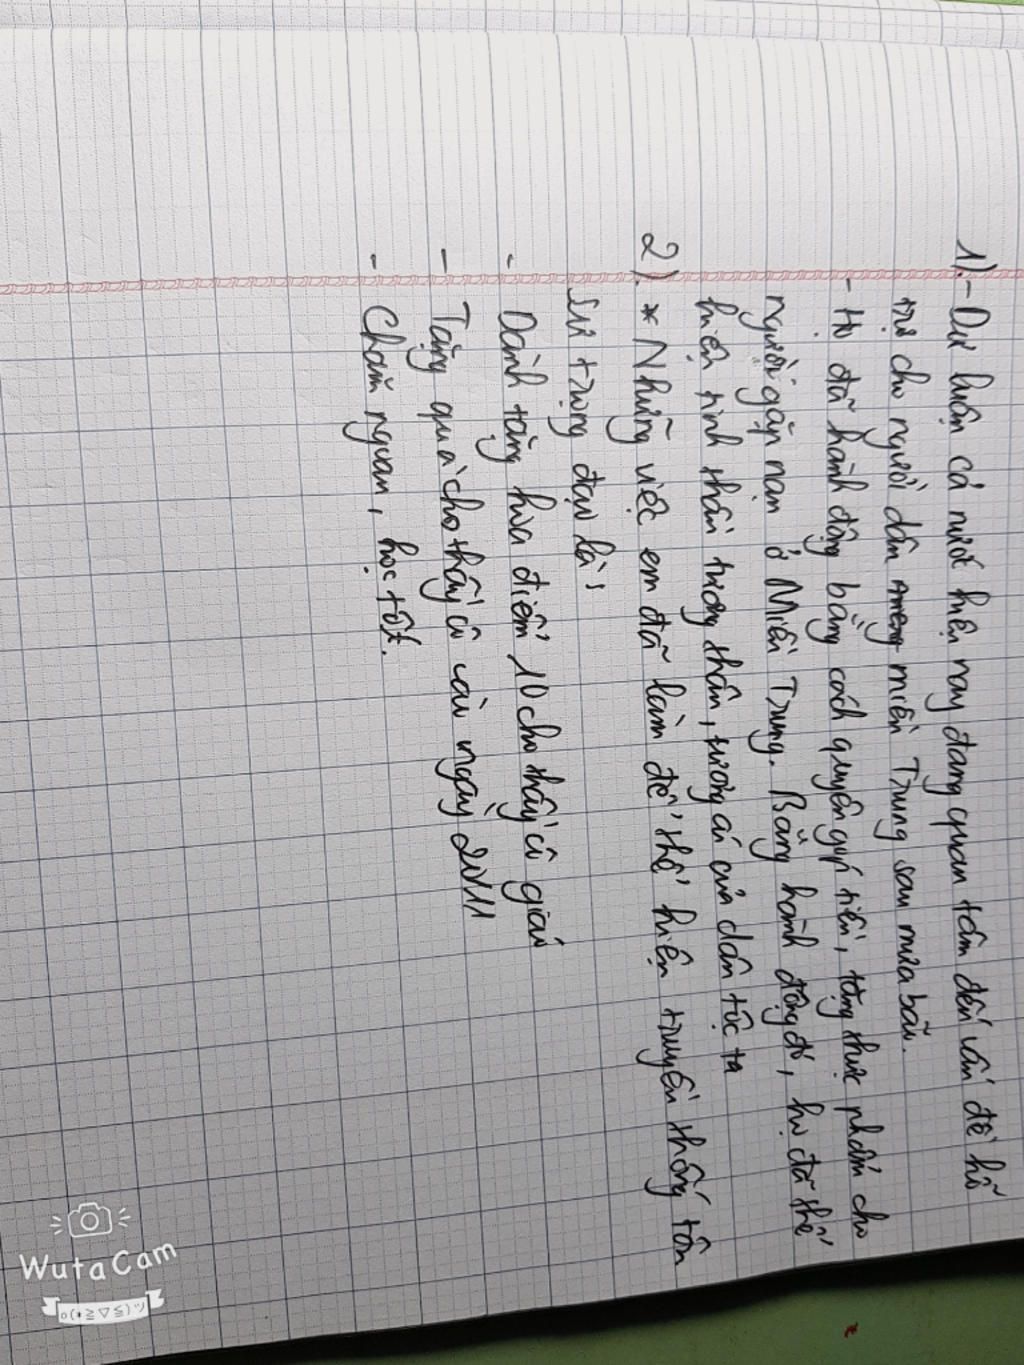 1).- Dư luận cả nước hiện nay đang quan tâm đến vấn đề hỗ
trợ cho người dân miền Trung sau mưa bão.
- Họ đã hành động bằng cách quyên góp tiền, tặng thực phẩm cho
người gặp nạn ở Miền Trung. Bằng hành động đó, họ đã thể
hiện tinh thần tương thân, tương ái của dân tộc ta
2). * Những việc em đã làm để thể hiện truyền thống tôn
sư trọng đạo là:
- Dành tặng hoa điểm 10 cho thầy cô giáo
- Tặng quà cho thầy cô vào ngày 20/11
- Chăm ngoan, học tốt.
WutaCam